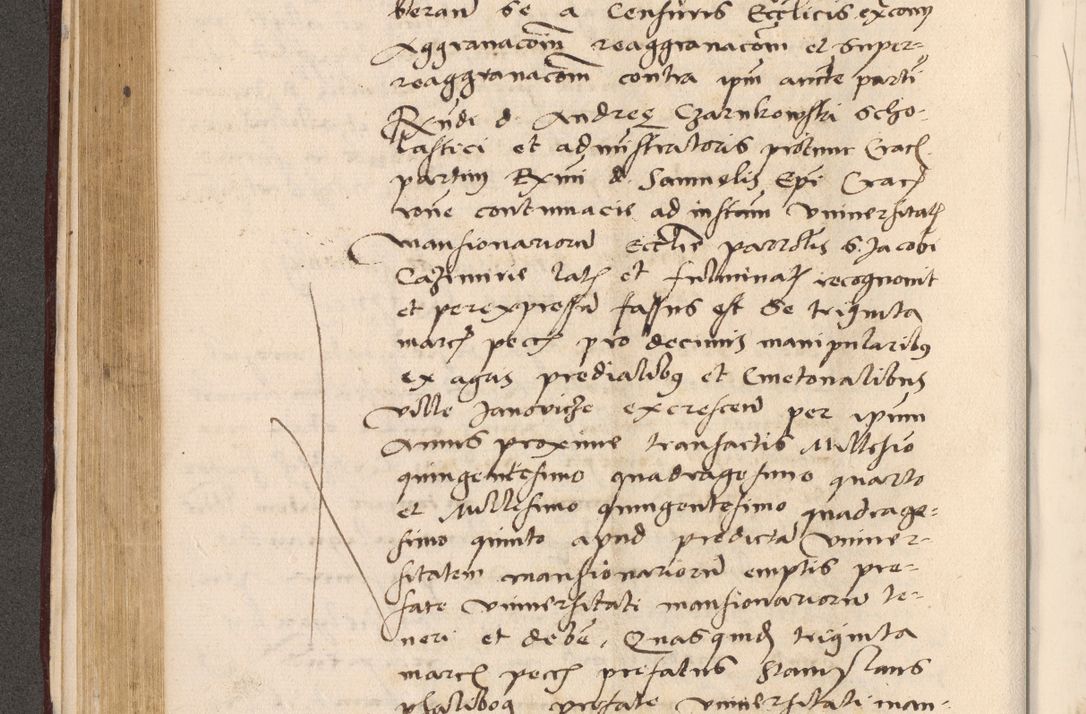 beran se a Censuris Ecclicis excom
Aggrauacom reaggrauacom et super-
reaggrauacom contra ipm ante partu
Rndi d. Andree Czarnkowski scho-
lastici et administratoris Crac
partum Rximi d. Samuelis Epi Crac
rone contumacie ad instam Vniuersitat
mansionarioru Ecclie parrolis S. Jacobi
Cazimirie lat et fulminat recognouit
et per expressu fassus est se triginta
marc pecc pro decimis manipularibus
ex agris predialibus et Cmetonalibus
ville Janoviche excrescen per ipsum
Annis proxime transactis Millesio
quingentesimo quadragesimo quarto
et Millesimo quingentesimo quadrage-
simo quinto apud predicta Vniuer-
sitatem mansionarioru emptis pre-
fate Vniuersitati mansionarioru te-
neri et debe. Quasquid triginta
marc pecc prefatus Stanislaus
prefate Vniuersitati man-